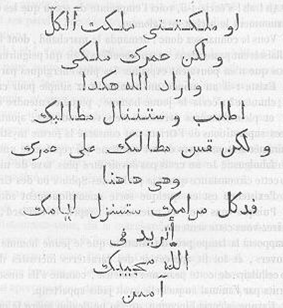 لو ملكتنى ملكت آلكلّ
و لكن عمرك ملكى
واراد الله هكذا
اطلب و ستننال مطالبك
و لكن قس مطالبك على عمرك
وهى هاهنا
فبكل مرامك ستسنزل ايامك
أتريد فى
الله مجيبك
آمين